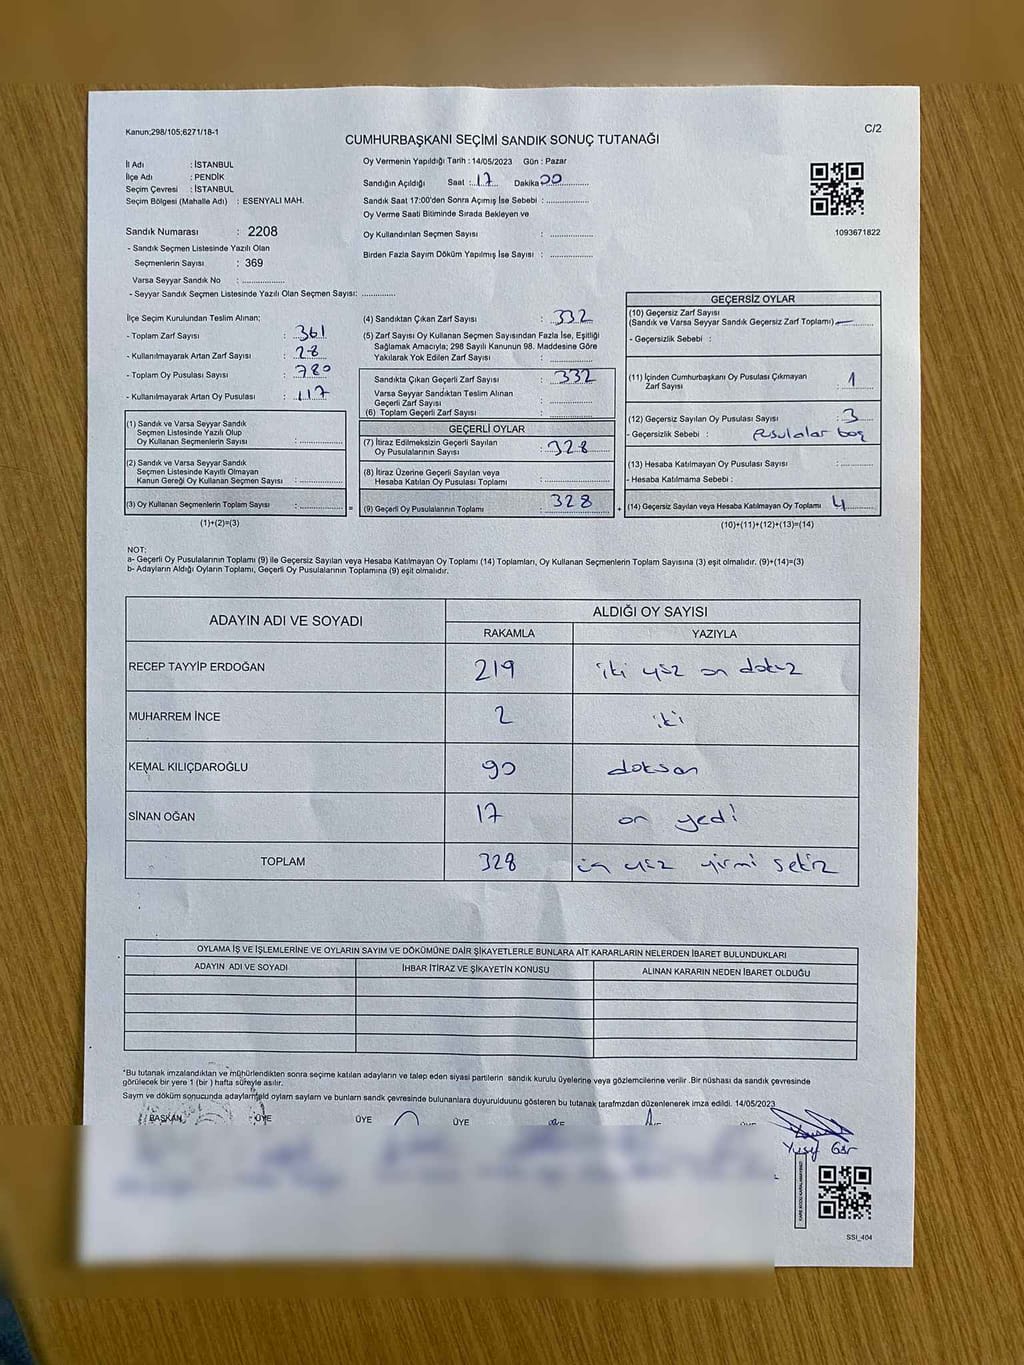 Kanun;298/105;6271/18-1
C/2
CUMHURBAŞKANI SEÇİMİ SANDIK SONUÇ TUTANAĞI
İl Adı : İSTANBUL
İlçe Adı : PENDİK
Seçim Çevresi : İSTANBUL
Seçim Bölgesi (Mahalle Adı) : ESENYALI MAH.
Sandık Numarası : 2208
- Sandık Seçmen Listesinde Yazılı Olan
Seçmenlerin Sayısı : 369
Varsa Seyyar Sandık No : ................
- Seyyar Sandık Seçmen Listesinde Yazılı Olan Seçmen Sayısı: .............
Oy Vermenin Yapıldığı Tarih : 14/05/2023 Gün : Pazar
Sandığın Açıldığı Saat : 17 Dakika 00
Sandık Saat 17:00'den Sonra Açımış İse Sebebi : ................
Oy Verme Saati Bitiminde Sırada Bekleyen ve
Oy Kullandırılan Seçmen Sayısı : ................
Birden Fazla Sayım Döküm Yapılmış İse Sayısı : ................
1093671822
İlçe Seçim Kurulundan Teslim Alınan;
- Toplam Zarf Sayısı : 361
- Kullanılmayarak Artan Zarf Sayısı : 28
- Toplam Oy Pusulası Sayısı : 780
- Kullanılmayarak Artan Oy Pusulası : 117
(1) Sandık ve Varsa Seyyar Sandık
Seçmen Listesinde Yazılı Olup
Oy Kullanan Seçmenlerin Sayısı : ................
(2) Sandık ve Varsa Seyyar Sandık
Seçmen Listesinde Kayıtlı Olmayan
Kanun Gereği Oy Kullanan Seçmen Sayısı : ................
(3) Oy Kullanan Seçmenlerin Toplam Sayısı : ................
(1)+(2)=(3)
(4) Sandıktan Çıkan Zarf Sayısı : 332
(5) Zarf Sayısı Oy Kullanan Seçmen Sayısından Fazla İse, Eşitliği
Sağlamak Amacıyla; 298 Sayılı Kanunun 98. Maddesine Göre
Yakılarak Yok Edilen Zarf Sayısı : ................
Sandıkta Çıkan Geçerli Zarf Sayısı : 332
Varsa Seyyar Sandıktan Teslim Alınan
Geçerli Zarf Sayısı : ................
(6) Toplam Geçerli Zarf Sayısı : ................
=
GEÇERLİ OYLAR
(7) İtiraz Edilmeksizin Geçerli Sayılan
Oy Pusulalarının Sayısı : 328
(8) İtiraz Üzerine Geçerli Sayılan veya
Hesaba Katılan Oy Pusulası Toplamı : ................
(9) Geçerli Oy Pusulalarının Toplamı : 328
+
GEÇERSİZ OYLAR
(10) Geçersiz Zarf Sayısı
(Sandık ve Varsa Seyyar Sandık Geçersiz Zarf Toplamı) —
- Geçersizlik Sebebi :
(11) İçinden Cumhurbaşkanı Oy Pusulası Çıkmayan
Zarf Sayısı : 1
(12) Geçersiz Sayılan Oy Pusulası Sayısı : 3
- Geçersizlik Sebebi : Pusulalar boş
(13) Hesaba Katılmayan Oy Pusulası Sayısı : ................
- Hesaba Katılmama Sebebi :
(14) Geçersiz Sayılan veya Hesaba Katılmayan Oy Toplamı 4
(10)+(11)+(12)+(13)=(14)
NOT:
a- Geçerli Oy Pusulalarının Toplamı (9) ile Geçersiz Sayılan veya Hesaba Katılmayan Oy Toplamı (14) Toplamları, Oy Kullanan Seçmenlerin Toplam Sayısına (3) eşit olmalıdır. (9)+(14)=(3)
b- Adayların Aldığı Oyların Toplamı, Geçerli Oy Pusulalarının Toplamına (9) eşit olmalıdır.
ADAYIN ADI VE SOYADI
ALDIĞI OY SAYISI
RAKAMLA YAZIYLA
RECEP TAYYİP ERDOĞAN 219 iki yüz on dokuz
MUHARREM İNCE 2 iki
KEMAL KILIÇDAROĞLU 90 doksan
SİNAN OĞAN 17 on yedi
TOPLAM 328 üç yüz yirmi sekiz
OYLAMA İŞ VE İŞLEMLERİNE VE OYLARIN SAYIM VE DÖKÜMÜNE DAİR ŞİKAYETLERLE BUNLARA AİT KARARLARIN NELERDEN İBARET BULUNDUKLARI
ADAYIN ADI VE SOYADI İHBAR İTİRAZ VE ŞİKAYETİN KONUSU ALINAN KARARIN NEDEN İBARET OLDUĞU
*Bu tutanak imzalandıktan ve mühürlendikten sonra seçime katılan adayların ve talep eden siyasi partilerin sandık kurulu üyelerine veya gözlemcilerine verilir .Bir nüshası da sandık çevresinde
görülecek bir yere 1 (bir ) hafta süreyle asılır.
Sayım ve döküm sonucunda oyların sayıları ve bunların sandık çevresinde bulunanlara duyurulduğunu gösteren bu tutanak tarafımızdan düzenlenerek imza edildi. 14/05/2023
BAŞKAN ÜYE ÜYE ÜYE
SSI_404